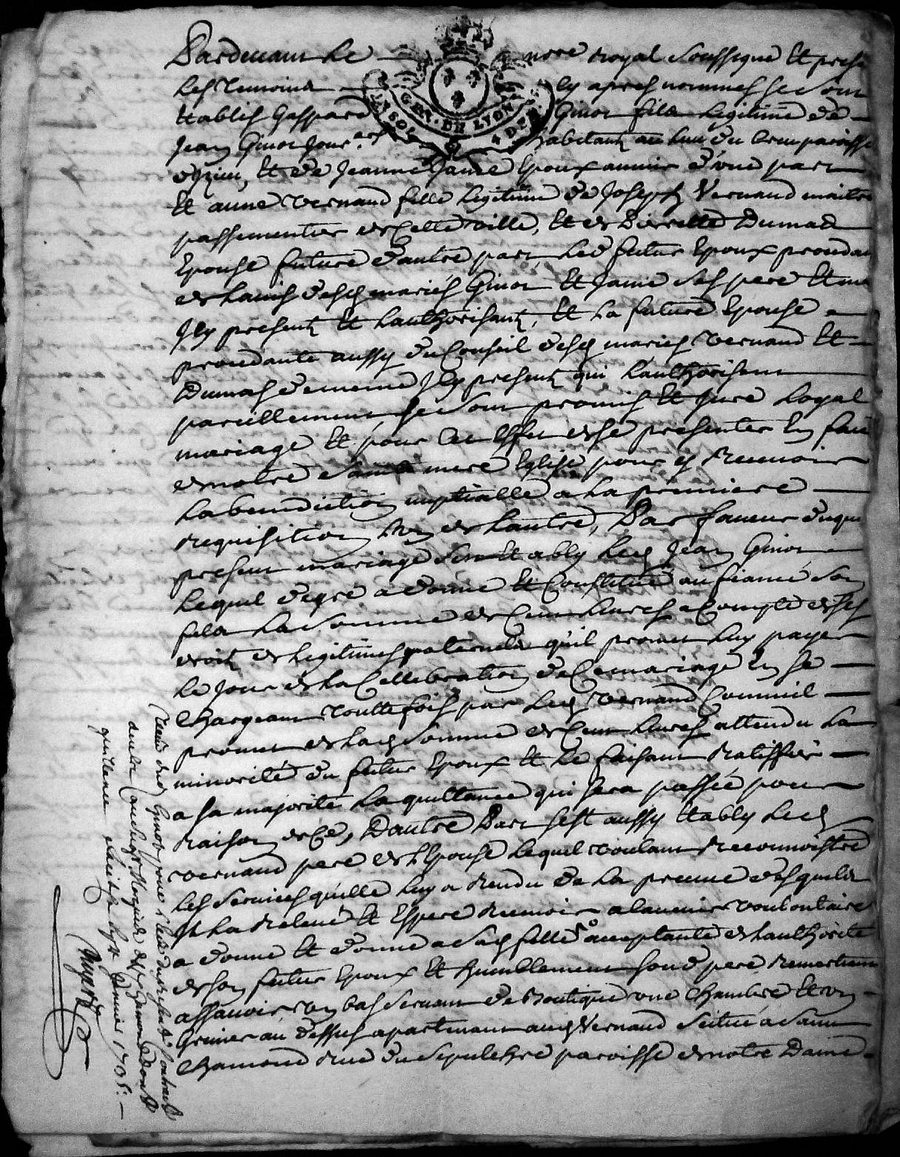 Pardevant Le nore royal soussigné Et prese
Les Temoins cy apres nommes se sont
Etablis Gaspard Ginot fils Legitime de
GEN. DE LYON
Jean Ginot Jour.er habitant au lieu du paroisse
d'izieu, Et de Jeanne Janie Epoux amnis d'une part
Et anne vernaud fille Legitime de Joseph Vernaud maitre
passementier de cette ville, Et de Pierrette Dumas
Epouse future d'autre part Led. futur Epoux procedan
de Lavis desd mariés Ginot Et Janie ses pere Et me
Icy presents Et Lauthorisant, Et La future Epouse
procedante aussy du Conseil desd mariés vernaud Et
Dumas de meme Icy presents qui Lauthorisent
pareillement se sont promis Et Juré Loyal
mariage Et pour cet Effet de se presenter En face
de notre sainte mere Eglise pour y Recevoir
La benediction nuptialle a La premiere
requisition de Lautre, Par faveur duquel
present mariage s'est Etably Led Jean Ginot
Lequel de gré a donné Et Constitué au fiancé son
fils La somme de Cent Livres a Compte de ses
droits de Legitimes paternels qu'il promet Luy payer
Le Jour de La Cellebration de Ce mariage En se
Chargeant touttefois par Led Vernaud Comme il
promet de Lad somme de Cent Livres attendu La
minorité du futur Epoux Et Le faisant Ratiffier
a sa majorité La quittance qui sera passée pour
Raison de Ce, D'autre Part s'est aussy Etably Led
vernaud pere de L'Epouse Lequel voulant Reconnoistre
Les services qu'elle Luy a Rendu de La preuve desquels
Il La Releve Et Espere Recevoir a Lavenir volontaire
a donné Et donne a sad fille acceptante de Lauthorité
de son futur Epoux Et humblement sond pere Remerciant
assavoir un bas servant de Boutique une Chambre Et un
Grenier au dessus apartenant aud Vernaud situé a saint
Chamond Rue du sepulchre paroisse de notre Dame
quittance 1735